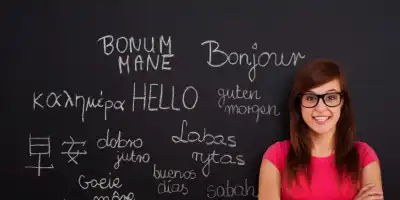 BONUM
MANE
Bonjour
καλημέρα
HELLO
guten
morgen
早安
dobro
jutro
Labas
rytas
buenos
días
Goeie